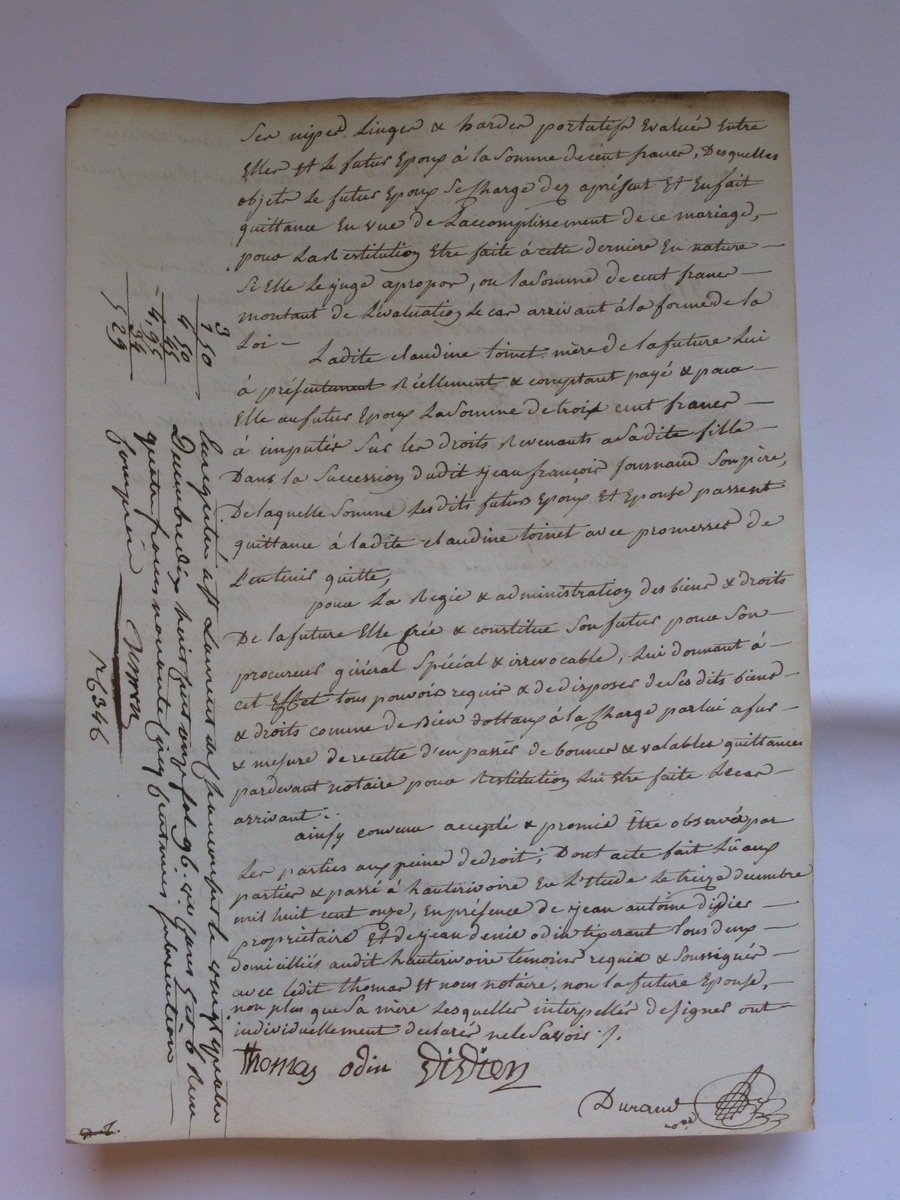 Ses nipes Linges & hardes portatifs Evalués Entre
Elles Et Le futur Epoux à la Somme de cent francs, Desquelles
objets Le futur Epoux Se Charge dez apresent Et En fait
quittance En vue de L'accomplissement de ce mariage, —
pour La Restitution Etre faite à cette derniere En nature —
Si Elle Le juge apropos, ou la Somme de cent francs —
montant de L'évaluation Le cas arrivant à la forme de la
Loi —
Ladite claudine toinet mère de la future Lui
à présentement Réellement & comptant payé &
Elle au futur Epoux La Somme de troix cent francs —
à imputés Sur les droits Revenants a Sadite fille —
Dans la Succession dudit jean francois journaud Son père,
De laquelle Somme Lesdits futurs Epoux Et Epouse passent
quittance à ladite claudine toinet avec promesses de
L'en tenir quitte,
pour La Regie & administration des biens & droits
De la future Elle Crée & constitue Son futur pour Son —
procureur général Spécial & irrevocable, Lui donnant à —
cet Effet tous pouvoirs requis & de disposer de Ses dits biens —
& droits comme de Bien dottaux à la Charge par lui a fur —
& mesure de recette d'en passés de bonnes & valables quittances
pardevant notaire pour Restitution Lui Etre faite Le cas —
arrivant.
ainsy convenu accepté & promis Être observé par
Les parties aux peines de droit; Dont acte fait Lû aux
parties & passé à hauterivoire En L'Etude Le treize decembre
mil huit cent onze, En présence de jean antoine didier —
propriétaire Et de jean denis odin tixerant tous deux —
domicilliés audit hauterivoire temoins requis & Soussignés —
avec ledit thomas Et nous notaire, non la future Epouse, —
non plus que Sa mère Lesquelles interpellés de signer ont
individuellement declarés ne le Savoir ./.
thomas odin Didier
Durand
nore
Enregistré à St Laurent de chamousset le vingt quatre
Decembre dix huit cent onze fol 96. Vo Case 5 et 6 Reçu
quatre francs nonante cinq centimes subvention
comprise
r 6346
3
1 50
4 50
45
4,95
34
5 29